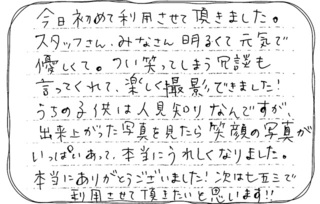 今日初めて利用させて頂きました。
スタッフさん、みなさん明るくて元気で
優しくて。つい笑ってしまう冗談も
言ってくれて、楽しく撮影できました!
うちの子供は人見知りなんですが、
出来上がった写真を見たら笑顔の写真が
いっぱいあって、本当にうれしくなりました。
本当にありがとうございました!次は七五三で
利用させて頂きたいと思います!!